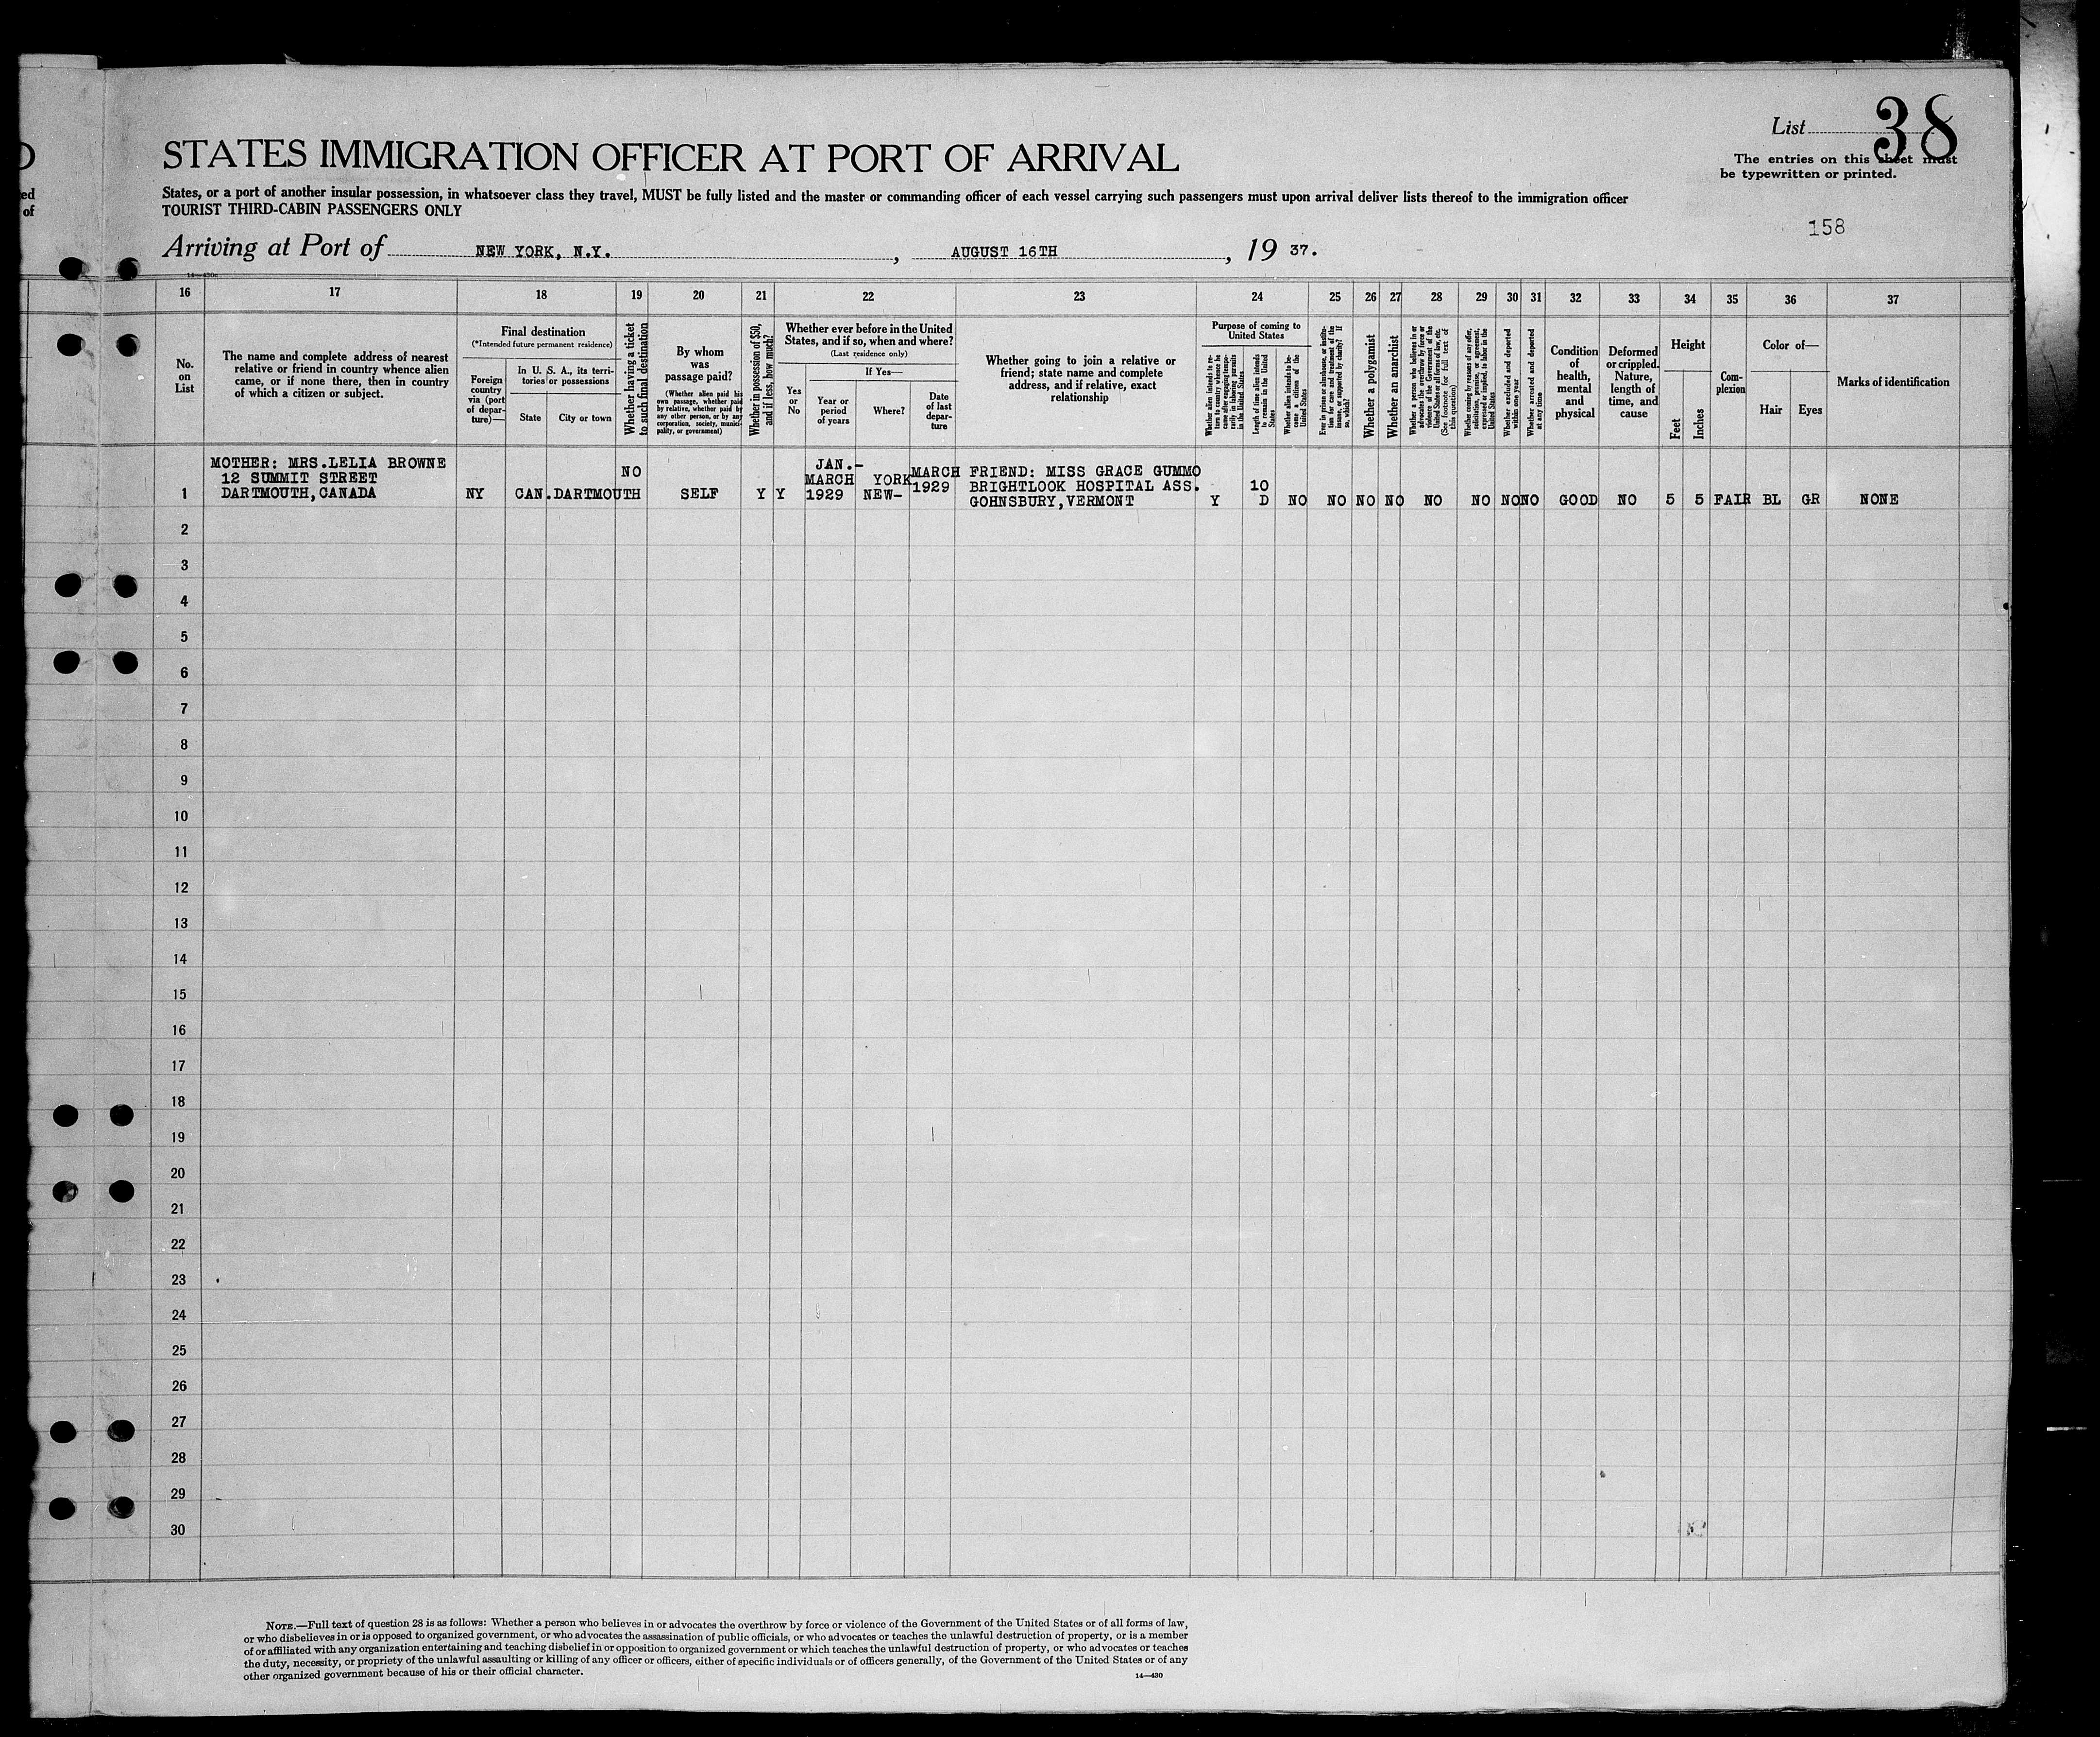 D
ed
of
List 38
The entries on this sheet must
be typewritten or printed.
STATES IMMIGRATION OFFICER AT PORT OF ARRIVAL
States, or a port of another insular possession, in whatsoever class they travel, MUST be fully listed and the master or commanding officer of each vessel carrying such passengers must upon arrival deliver lists thereof to the immigration officer
TOURIST THIRD-CABIN PASSENGERS ONLY
158
Arriving at Port of NEW YORK, N.Y. , AUGUST 16TH , 19 37.
14—430c
16 17 18 19 20 21 22 23 24 25 26 27 28 29 30 31 32 33 34 35 36 37
No.
on
List
The name and complete address of nearest
relative or friend in country whence alien
came, or if none there, then in country
of which a citizen or subject.
Final destination
(*Intended future permanent residence)
Foreign
country
via (port
of depar-
ture)—
In U. S. A., its terri-
tories or possessions
State
City or town
Whether having a ticket
to such final destination
By whom
was
passage paid?
(Whether alien paid his
own passage, whether paid
by relative, whether paid by
any other person, or by any
corporation, society, munici-
pality, or government)
Whether in possession of $50,
and if less, how much?
Whether ever before in the United
States, and if so, when and where?
(Last residence only)
Yes
or
No
If Yes—
Year or
period
of years
Where?
Date
of last
depar-
ture
Whether going to join a relative or
friend; state name and complete
address, and if relative, exact
relationship
Purpose of coming to
United States
Whether alien intends to re-
turn to country whence he
came after engaging tempo-
rarily in laboring pursuits
in the United States
Length of time alien intends
to remain in the United
States
Whether alien intends to be-
come a citizen of the
United States
Ever in prison or almshouse, or institu-
tion for care and treatment of the
insane, or supported by charity? If
so, which?
Whether a polygamist
Whether an anarchist
Whether a person who believes in or
advocates the overthrow by force or
violence of the Government of the
United States or all forms of law, etc.
(See footnote for full text of
this question)
Whether coming by reasons of any offer,
solicitation, promise, or agreement,
expressed or implied, to labor in the
United States
Whether excluded and deported
within one year
Whether arrested and deported
at any time
Condition
of
health,
mental
and
physical
Deformed
or crippled.
Nature,
length of
time, and
cause
Height
Feet
Inches
Com-
plexion
Color of—
Hair
Eyes
Marks of identification
MOTHER: MRS.LELIA BROWNE
12 SUMMIT STREET
DARTMOUTH,CANADA
1
NY
CAN.DARTMOUTH
NO
SELF
Y
Y
JAN.-
MARCH
1929
YORK
NEW-
MARCH
1929
FRIEND: MISS GRACE GUMMO
BRIGHTLOOK HOSPITAL ASS.
GOHNSBURY,VERMONT
Y
10
D
NO
NO
NO
NO
NO
NO
NO
NO
GOOD
NO
5
5
FAIR
BL
GR
NONE
2
3
4
5
6
7
8
9
10
11
12
13
14
15
16
17
18
19
20
21
22
23
24
25
26
27
28
29
30
NOTE.—Full text of question 28 is as follows: Whether a person who believes in or advocates the overthrow by force or violence of the Government of the United States or of all forms of law,
or who disbelieves in or is opposed to organized government, or who advocates the assassination of public officials, or who advocates or teaches the unlawful destruction of property, or is a member
of or affiliated with any organization entertaining and teaching disbelief in or opposition to organized government or which teaches the unlawful destruction of property, or who advocates or teaches
the duty, necessity, or propriety of the unlawful assaulting or killing of any officer or officers, either of specific individuals or of officers generally, of the Government of the United States or of any
other organized government because of his or their official character.
14—430